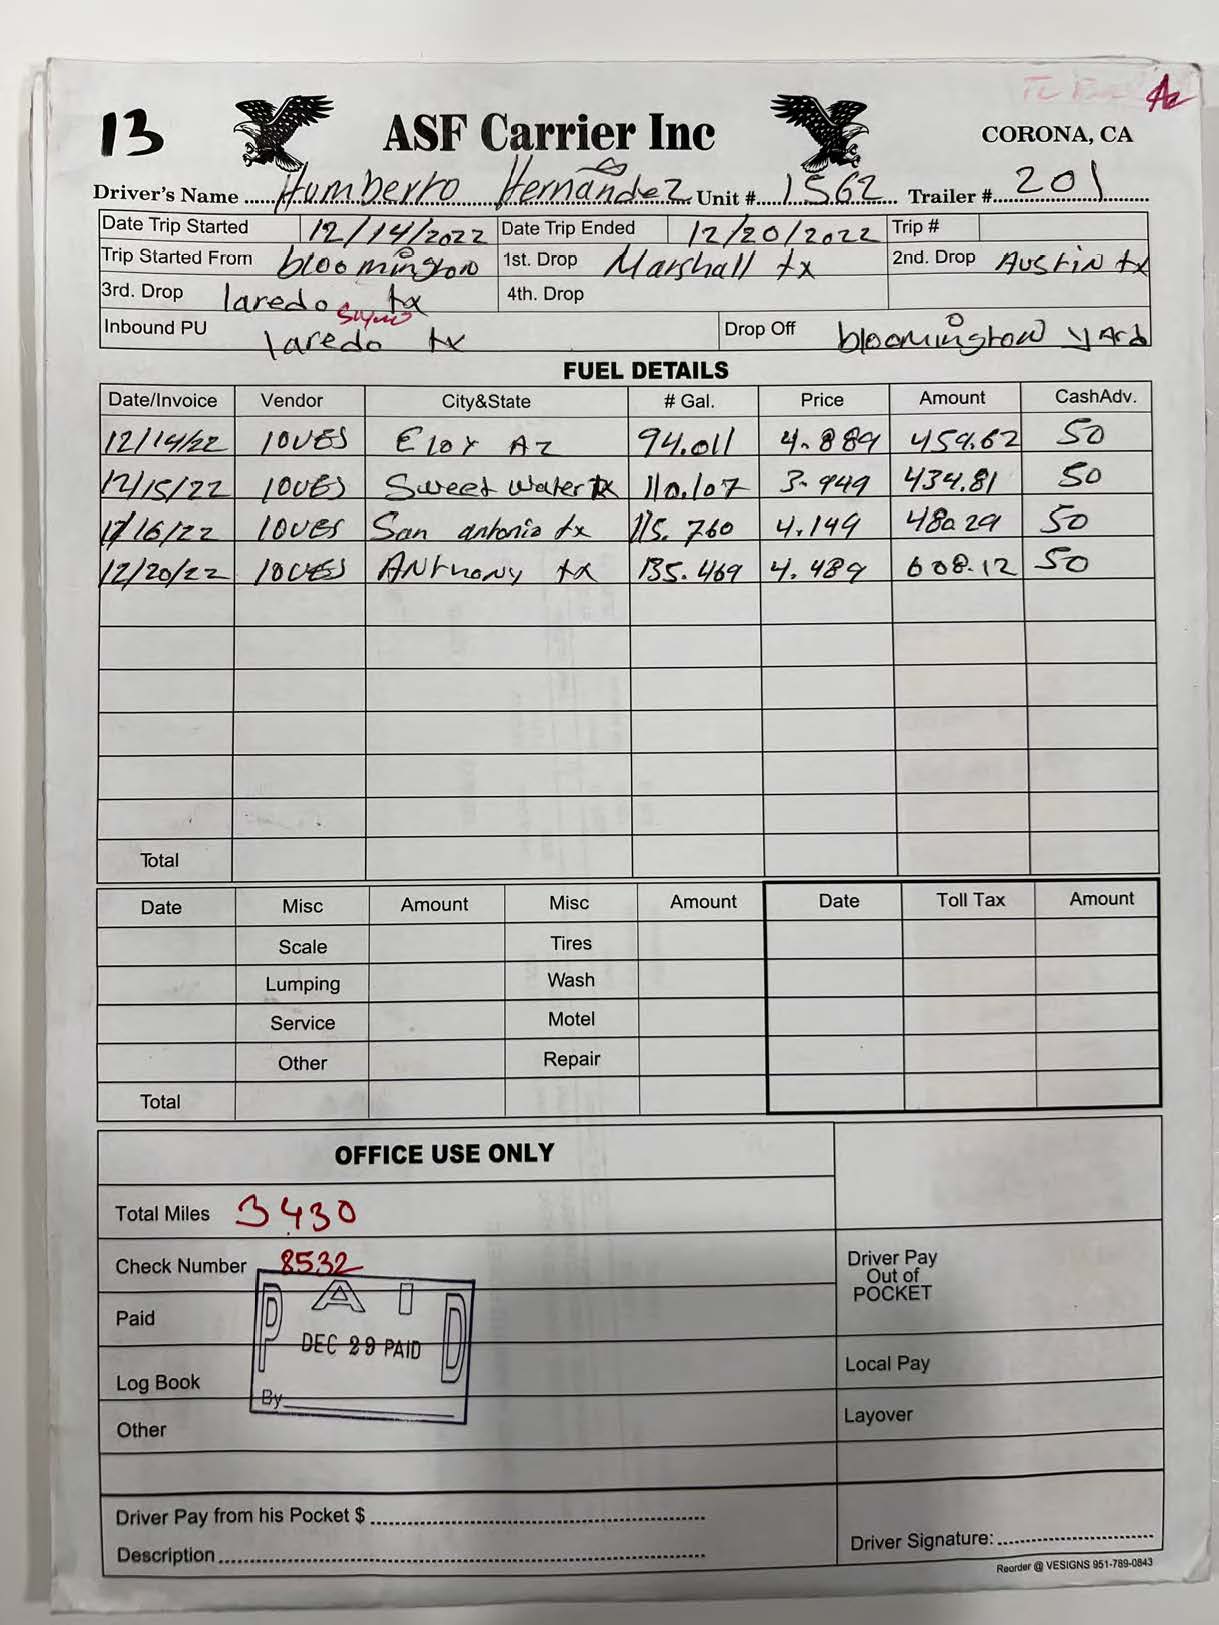 13
ASF Carrier Inc
CORONA, CA
Az
Driver's Name Humberto Hernandez Unit # 1562 Trailer # 201
Date Trip Started 12/14/2022 Date Trip Ended 12/20/2022 Trip #
Trip Started From bloomington 1st. Drop Marshall tx 2nd. Drop Austin tx
3rd. Drop laredo tx 4th. Drop
Inbound PU laredo tx Drop Off bloomington yard
FUEL DETAILS
Date/Invoice Vendor City&State # Gal. Price Amount CashAdv.
12/14/22 loves Eloy AZ 94.011 4.889 459.62 50
12/15/22 loves Sweet water tx 110.107 3.949 434.81 50
12/16/22 loves San antonio tx 115.760 4.149 480.29 50
12/20/22 loves Anthony tx 135.469 4.489 608.12 50
Total
Date Misc Amount Misc Amount Date Toll Tax Amount
Scale Tires
Lumping Wash
Service Motel
Other Repair
Total
OFFICE USE ONLY
Total Miles 3430
Check Number 8532
Driver Pay Out of POCKET
Paid
PAID
DEC 29 PAID
By
Log Book
Local Pay
Other
Layover
Driver Pay from his Pocket $
Description
Driver Signature:
Reorder @ VESIGNS 951-789-0843